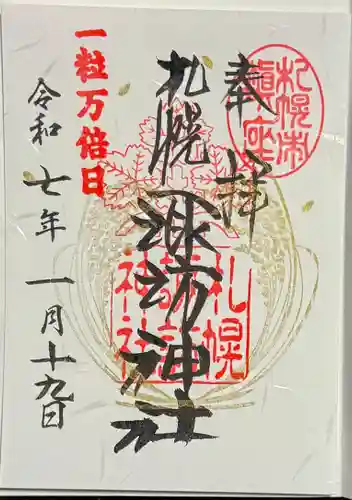 奉拝
札幌市
鎮座
札幌諏訪神社
札幌
諏訪
神社
一粒万倍日
令和七年一月十九日